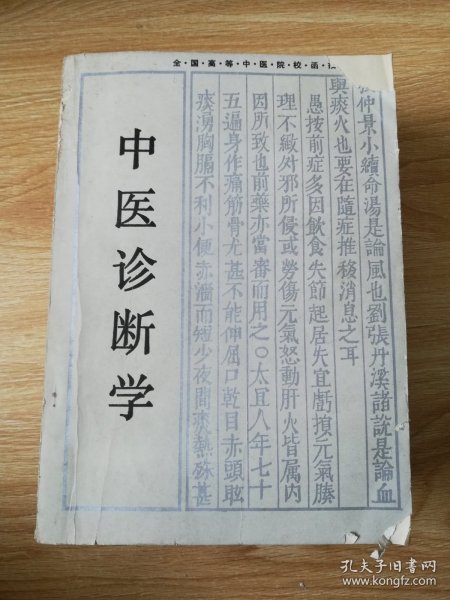 全·国·高·等·中·医·院·校·函·授
中医诊断学
仲景小續命湯是論風也劉張丹溪諸說是論血
與痰火也要在隨症推移消息之耳
愚按前症多因飲食失節起居失宜虧損元氣腠
理不緻外邪所侵或勞傷元氣怒動肝火皆属内
因所致也前藥亦當審而用之○太宜人年七十
五遍身作痛筋骨尤甚不能伸屈口乾目赤頭眩
痰湧胸膈不利小便赤澀而短少夜間痰熱殊甚
孔夫子旧书网
www.kongfz.com